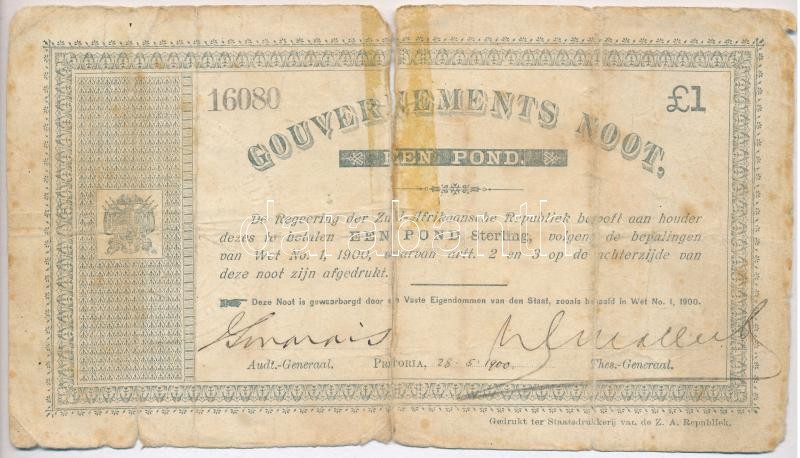 16080
£1
GOUVERNEMENTS NOOT,
EEN POND.
De Regeering der Zuid-Afrikaansche Republiek belooft aan houder
dezes te betalen EEN POND Sterling, volgens de bepalingen
van Wet No. 1, 1900, waarvan artt. 2 en 3 op de achterzijde van
deze noot zijn afgedrukt.
Deze Noot is gewaarborgd door alle Vaste Eigendommen van den Staat, zooals bepaald in Wet No. 1, 1900.
Audt.-Generaal. PRETORIA, 28-5-1900 Thes.-Generaal.
Gedrukt ter Staatsdrukkerij van de Z. A. Republiek.